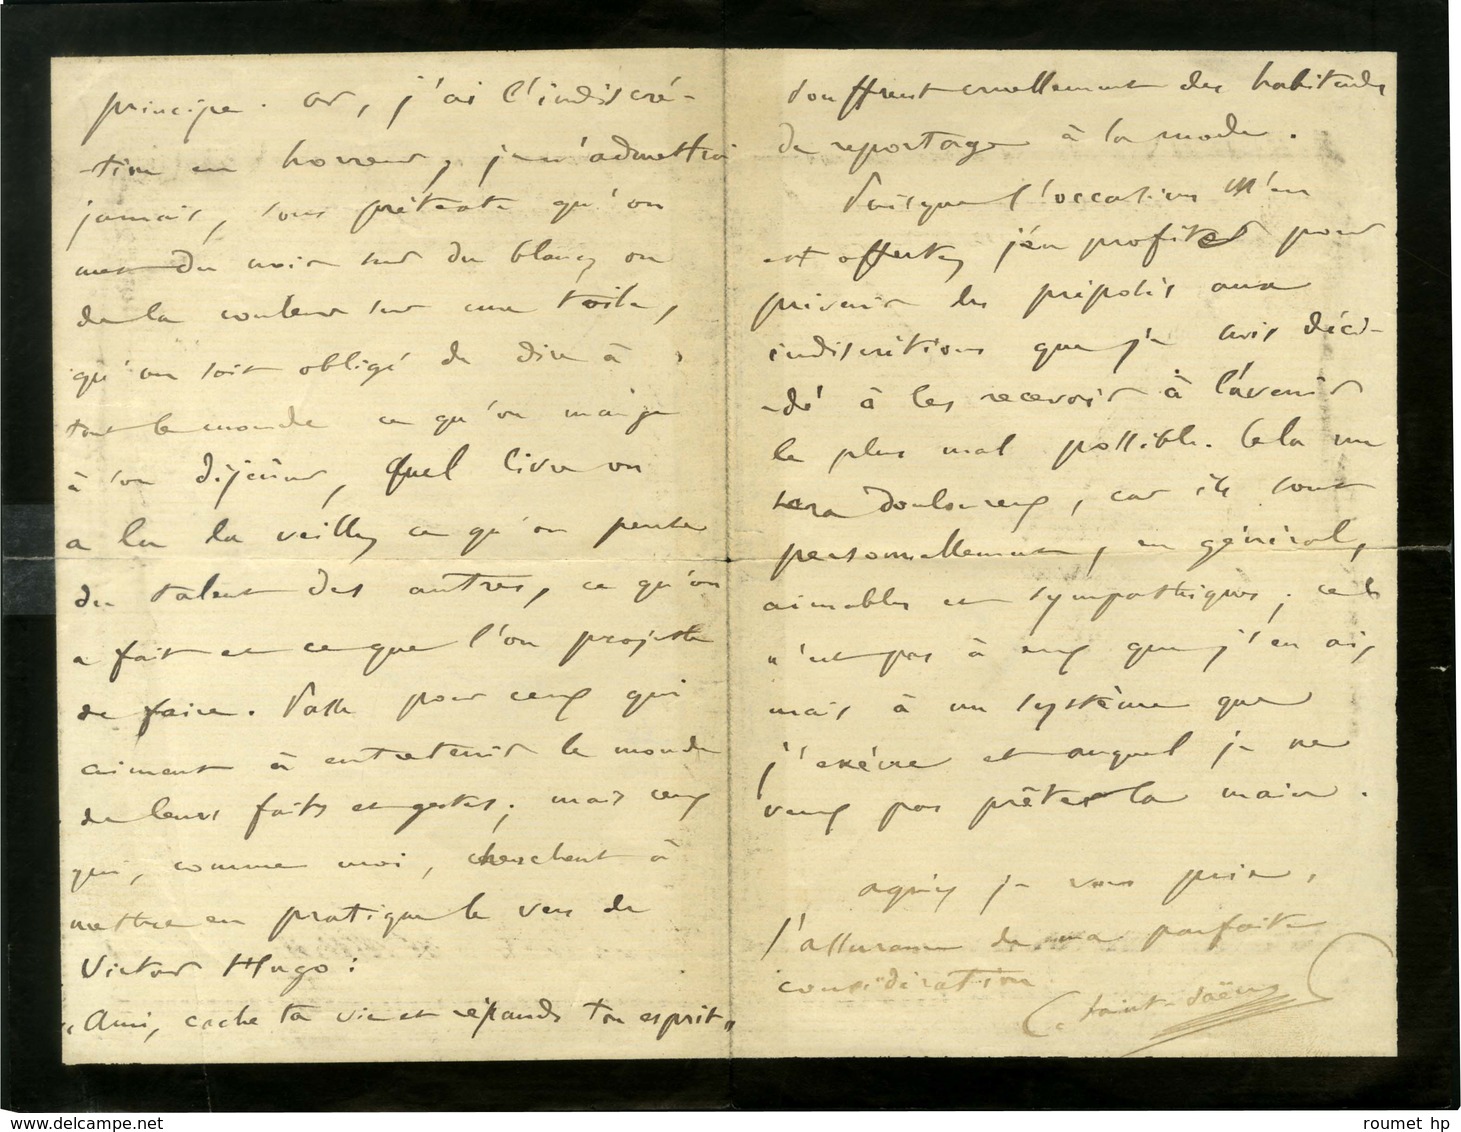 principe. Or, j'ai l'indiscré-
-tion en horreur, je n'admettrai
jamais, sous prétexte qu'on
met du noir sur du blanc, ou
de la couleur sur une toile,
qu'on soit obligé de dire à
tout le monde ce qu'on mange
à son déjeûner, quel livre on
a lu la veille, ce qu'on pense
du talent des autres, ce qu'on
a fait et ce que l'on projette
de faire. Passe pour ceux qui
aiment à entretenir le monde
de leurs faits et gestes; mais ceux
qui, comme moi, cherchent à
mettre en pratique le vers de
Victor Hugo :
« Ami, cache ta vie et répands ton esprit »
souffrent cruellement des habitudes
de reportage à la mode.
Puisque l'occasion m'en
est offerte, j'en profite pour
prévenir les préposés aux
indiscrétions que je suis déci-
-dé à les recevoir à l'avenir
le plus mal possible. Cela me
sera douloureux, car ils sont
personnellement, en général,
aimables et sympathiques; ce
n'est pas à eux que j'en ai,
mais à un système que
j'exècre et auquel je ne
veux pas prêter la main.
Agréez je vous prie,
l'assurance de ma parfaite
considération
C. Saint-Saëns
roumet hp